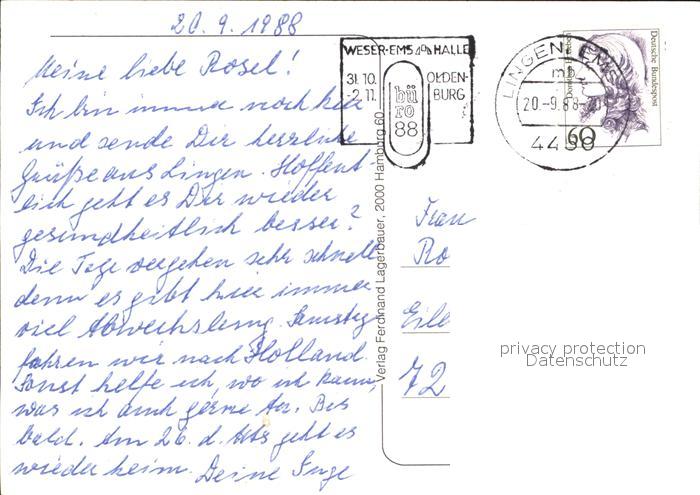 20.9.1988
Meine liebe Rosel!
Ich bin immer noch hier
und sende Dir herzliche
Grüße aus Lingen. Hoffent
lich geht es Dir wieder
gesundheitlich besser?
Die Tage vergehen sehr schnell
denn es gibt hier immer
viel Abwechslung. Samstag
fahren wir nach Holland.
Sonst helfe ich, wo ich kann,
was ich auch gerne tu. Bis
bald. Am 26. d. Mts geht es
wieder heim. Deine Inge
WESER-EMS HALLE
31.10.
-2.11.
OLDEN-
BURG
bü
ro
88
LINGEN, EMS
mb
20.-9.88-20
4450
60
Deutsche Bundespost
Verlag Ferdinand Lagerbauer, 2000 Hamburg 60
Frau
Ro
Eile
72
privacy protection
Datenschutz